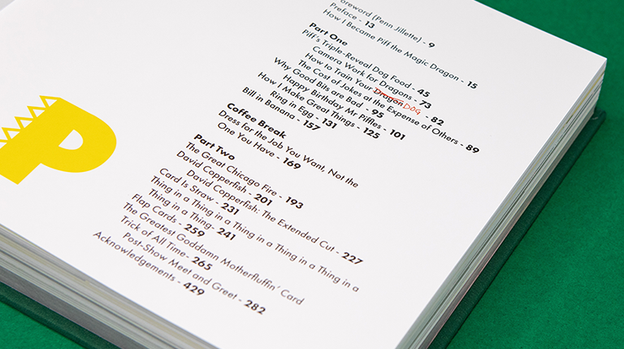 oreword (Penn Jillette) - 9
Preface - 13
How I Became Piff the Magic Dragon - 15
Part One
Piff's Triple-Reveal Dog Food - 45
Camera Work for Dragons - 73
How to Train Your Dragon Dog - 82
The Cost of Jokes at the Expense of Others - 89
Why Good Bills are Bad - 95
Happy Birthday Mr Piffles - 101
How I Make Great Things - 125
Ring in Egg - 131
Bill in Banana - 157
Coffee Break
Dress for the Job You Want, Not the
One You Have - 169
Part Two
The Great Chicago Fire - 193
David Copperfish - 201
David Copperfish: The Extended Cut - 227
Card Is Straw - 231
Thing in a Thing in a Thing in a Thing in a Thing in a
Thing in a Thing - 241
Flap Cards - 259
The Greatest Goddamn Motherfluffin' Card
Trick of All Time- 265
Post-Show Meet and Greet - 282
Acknowledgements - 429
P